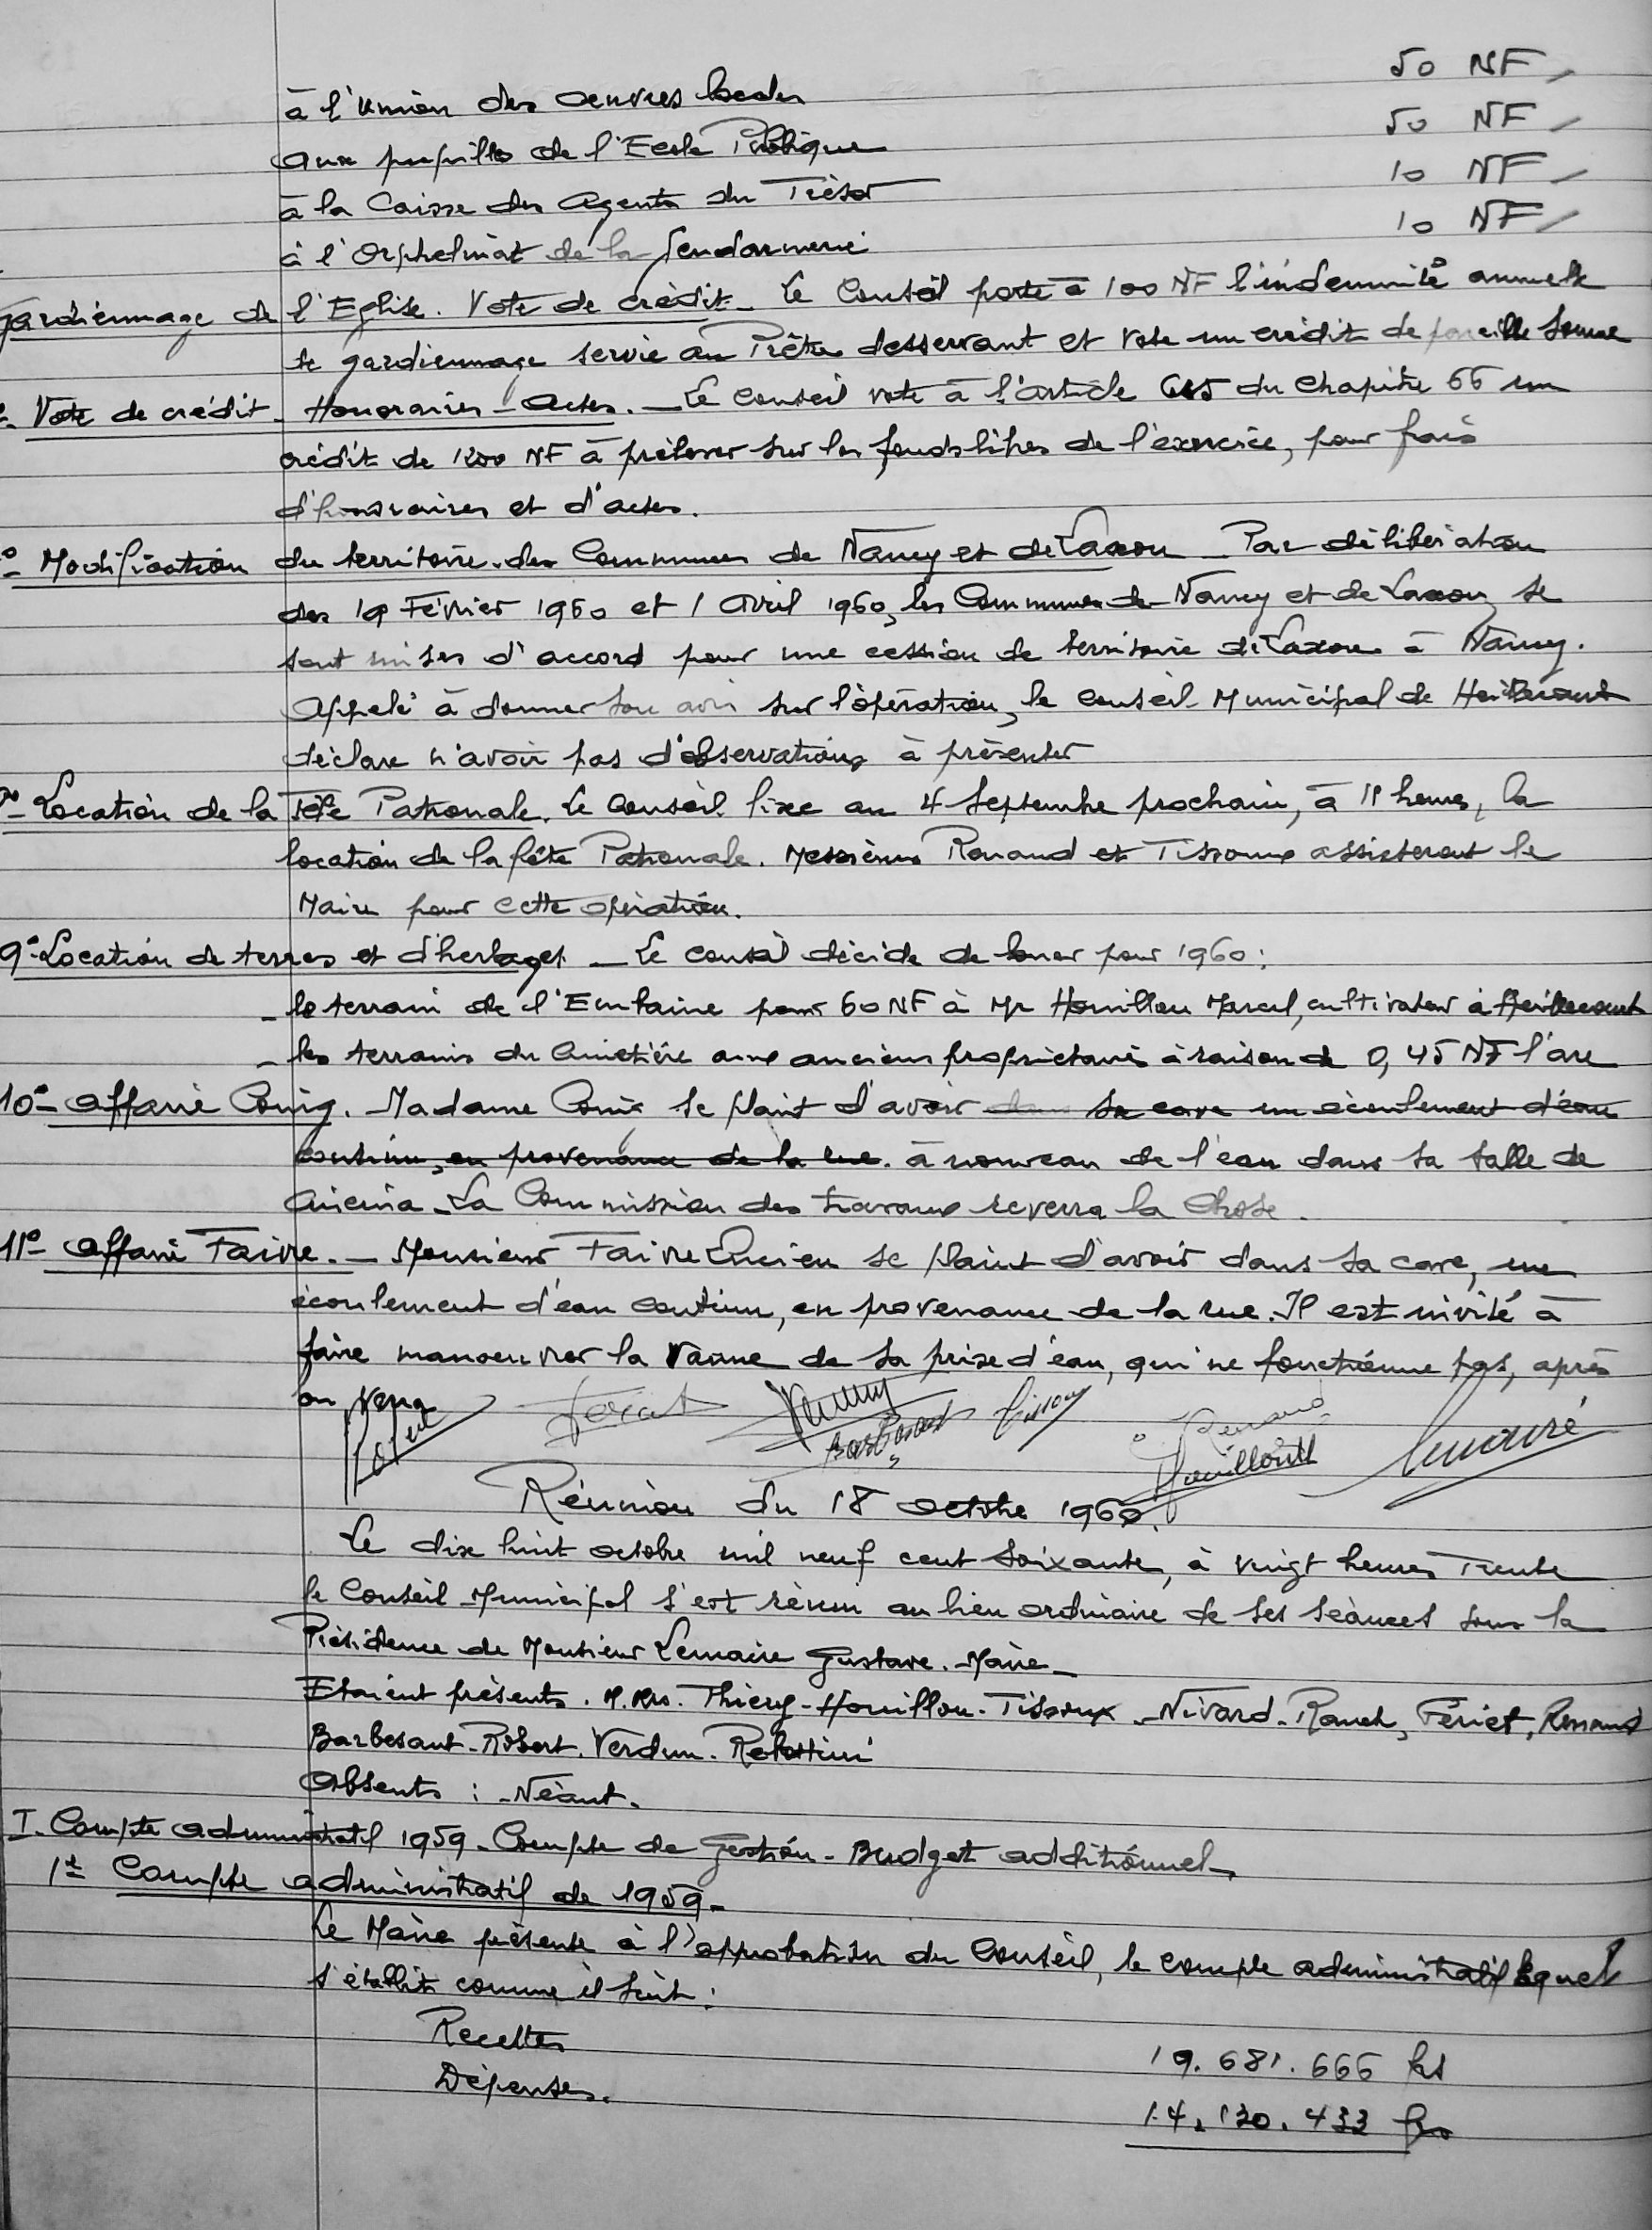 à l'union des oeuvres locales 50 NF
aux pupilles de l'Ecole Publique 50 NF
à la Caisse des Agents du Trésor 10 NF
à l'Orphelinat de la Gendarmerie 10 NF
Gardiennage de l'Eglise. Vote de crédit - Le Conseil porte à 100 NF l'indemnité annuelle
de gardiennage servie au Prêtre desservant et vote un crédit de pareille somme
- Vote de crédit - Honoraires - Actes. - Le Conseil vote à l'article 665 du chapitre 66 un
crédit de 1200 NF à prélever sur les fonds libres de l'exercice, pour frais
d'honoraires et d'actes.
- Modification du territoire des Communes de Nancy et de Laxou - Par délibération
des 19 Février 1960 et 1 Avril 1960, les Communes de Nancy et de Laxou, se
sont mises d'accord pour une cession de territoire de Laxou à Nancy.
Appelé à donner son avis sur l'opération, le conseil Municipal de Heillecourt
déclare n'avoir pas d'observations à présenter
- Location de la Fête Patronale. Le Conseil fixe au 4 Septembre prochain, à 11 heures, la
location de la fête Patronale. Messieurs Renaud et Tissoux assisteront le
Maire pour cette opération.
9°- Location de terres et d'herbages - Le conseil décide de louer pour 1960 :
- le terrain de l'Embanie pour 60 NF à Mr Houillon Marcel, cultivateur à Heillecourt
- les terrains du Cimetière aux anciens propriétaires à raison de 0,45 NF l'are
10°- Affaire Conig. Madame Conig se plaint d'avoir dans sa cave un écoulement d'eau
continu, en provenance de la rue. à nouveau de l'eau dans sa salle de
cinéma - La Commission des travaux reverra la chose.
11°- Affaire Faivre. - Monsieur Faivre Lucien se plaint d'avoir dans sa cave, un
écoulement d'eau continu, en provenance de la rue. Il est invité à
faire manoeuvrer la vanne de sa prise d'eau, qui ne fonctionne pas, après
on verra
Barbesant Tissoux Renaud Houillon Lemaire
Réunion du 18 octobre 1960.
Le dix huit octobre mil neuf cent soixante, à vingt heures Trente
le Conseil Municipal s'est réuni au lieu ordinaire de ses séances sous la
Présidence de Monsieur Lemaire Gustave. Maire -
Etaient présents. M.Mrs. Thiery - Houillon - Tissoux - Nivard - Rauch, Fériet, Renaud
Barbesant - Robert. Verdun - Rebottini
Absents : - Néant.
I - Compte administratif 1959 - Compte de Gestion - Budget additionnel -
1° Compte administratif de 1959 -
Le Maire présente à l'approbation du Conseil, le compte administratif lequel
s'établit comme il suit :
Recettes 19.681.666 frs
Dépenses. 14.130.433 frs